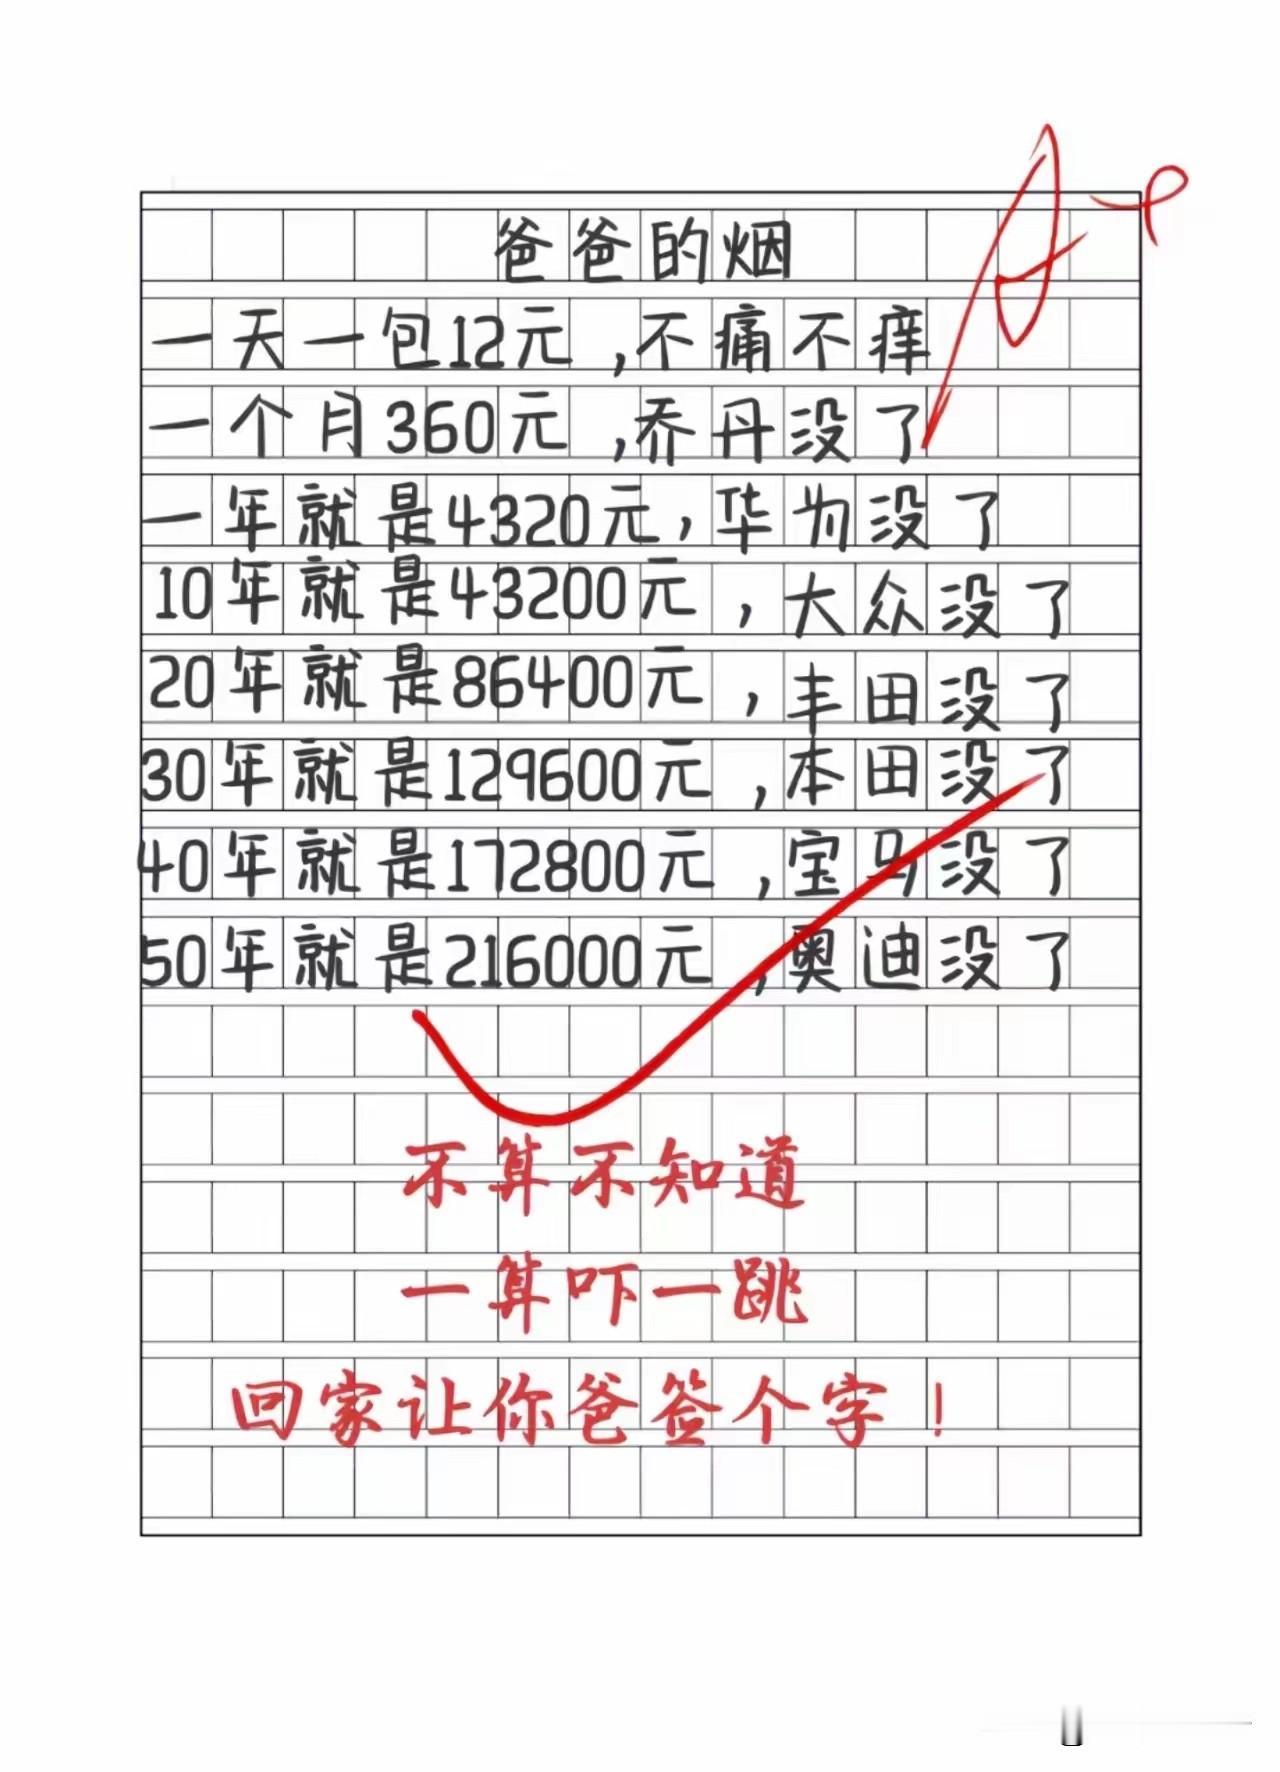 爸爸的烟
一天一包12元,不痛不痒
一个月360元,乔丹没了
一年就是4320元,华为没了
10年就是43200元,大众没了
20年就是86400元,丰田没了
30年就是129600元,本田没了
40年就是172800元,宝马没了
50年就是216000元,奥迪没了
不算不知道
一算吓一跳
回家让你爸签个字!